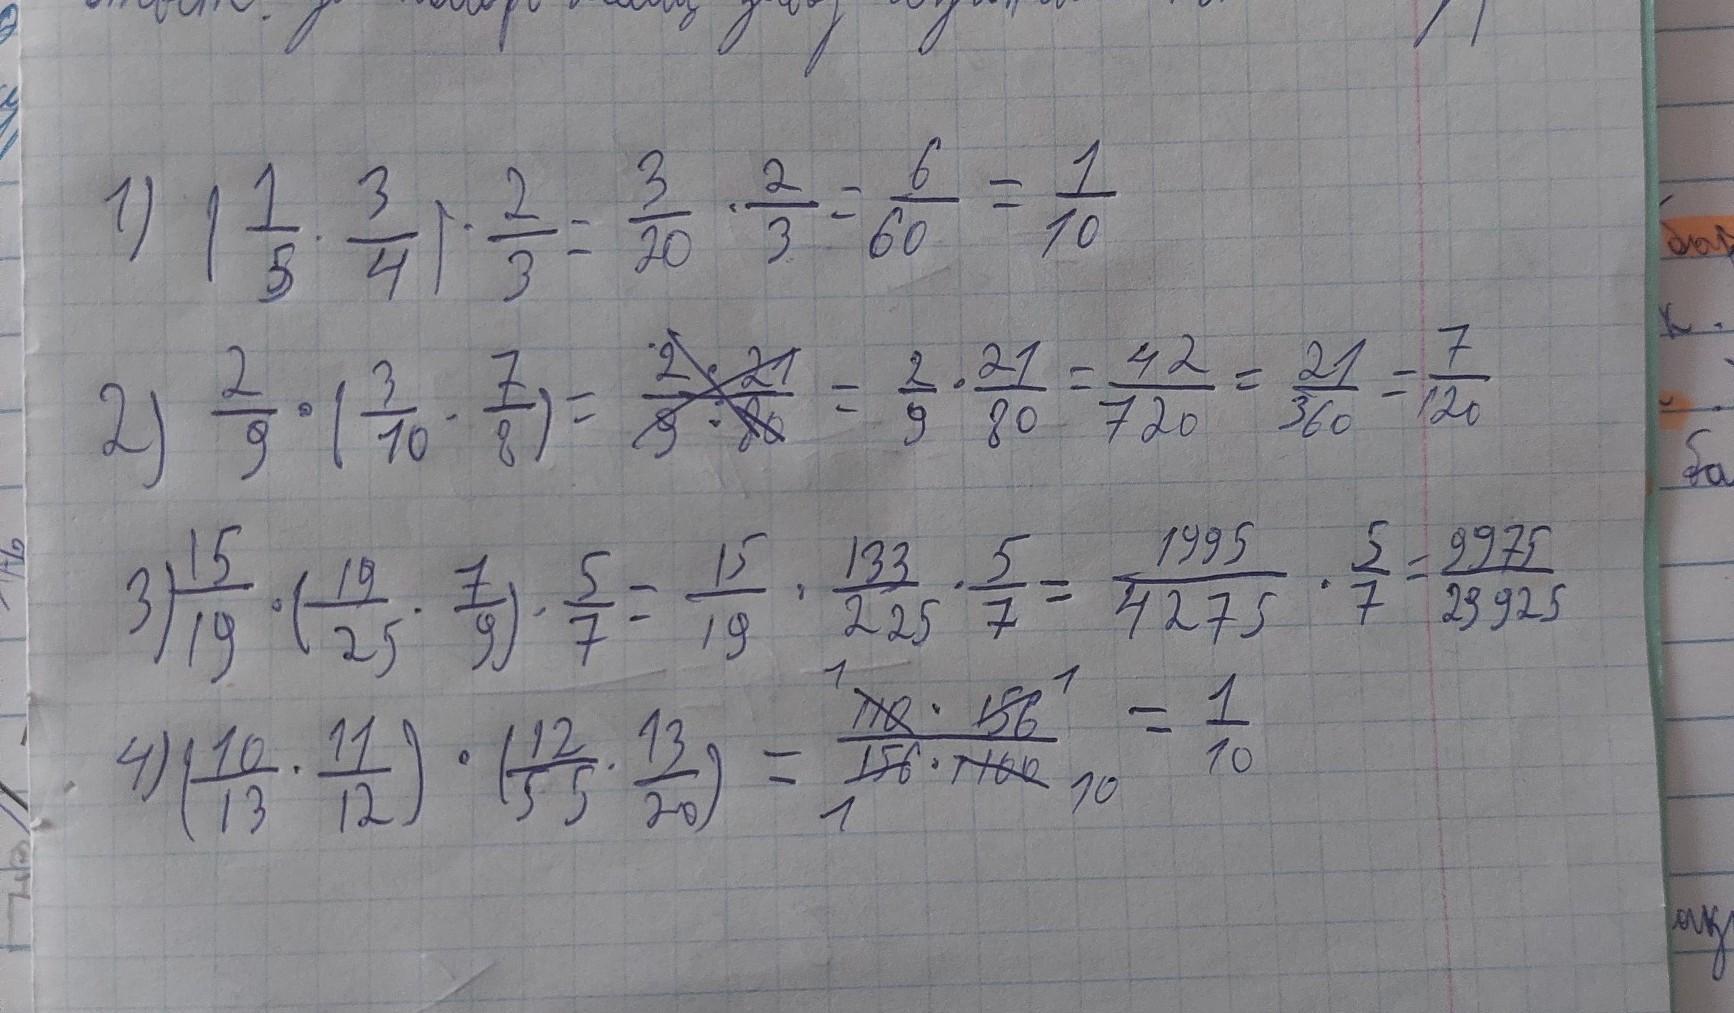 1) (1/5 · 3/4) · 2/3 = 3/20 · 2/3 = 6/60 = 1/10
2) 2/9 · (3/10 · 7/8) = 2 · 21/9 · 80 = 2/9 · 21/80 = 42/720 = 21/360 = 7/120
3) 15/19 · (19/25 · 7/9) · 5/7 = 15/19 · 133/225 · 5/7 = 1995/4275 · 5/7 = 9975/29925
4) (10/13 · 11/12) · (12/55 · 13/20) = 1 110 · 156 1/1 156 · 1100 10 = 1/10